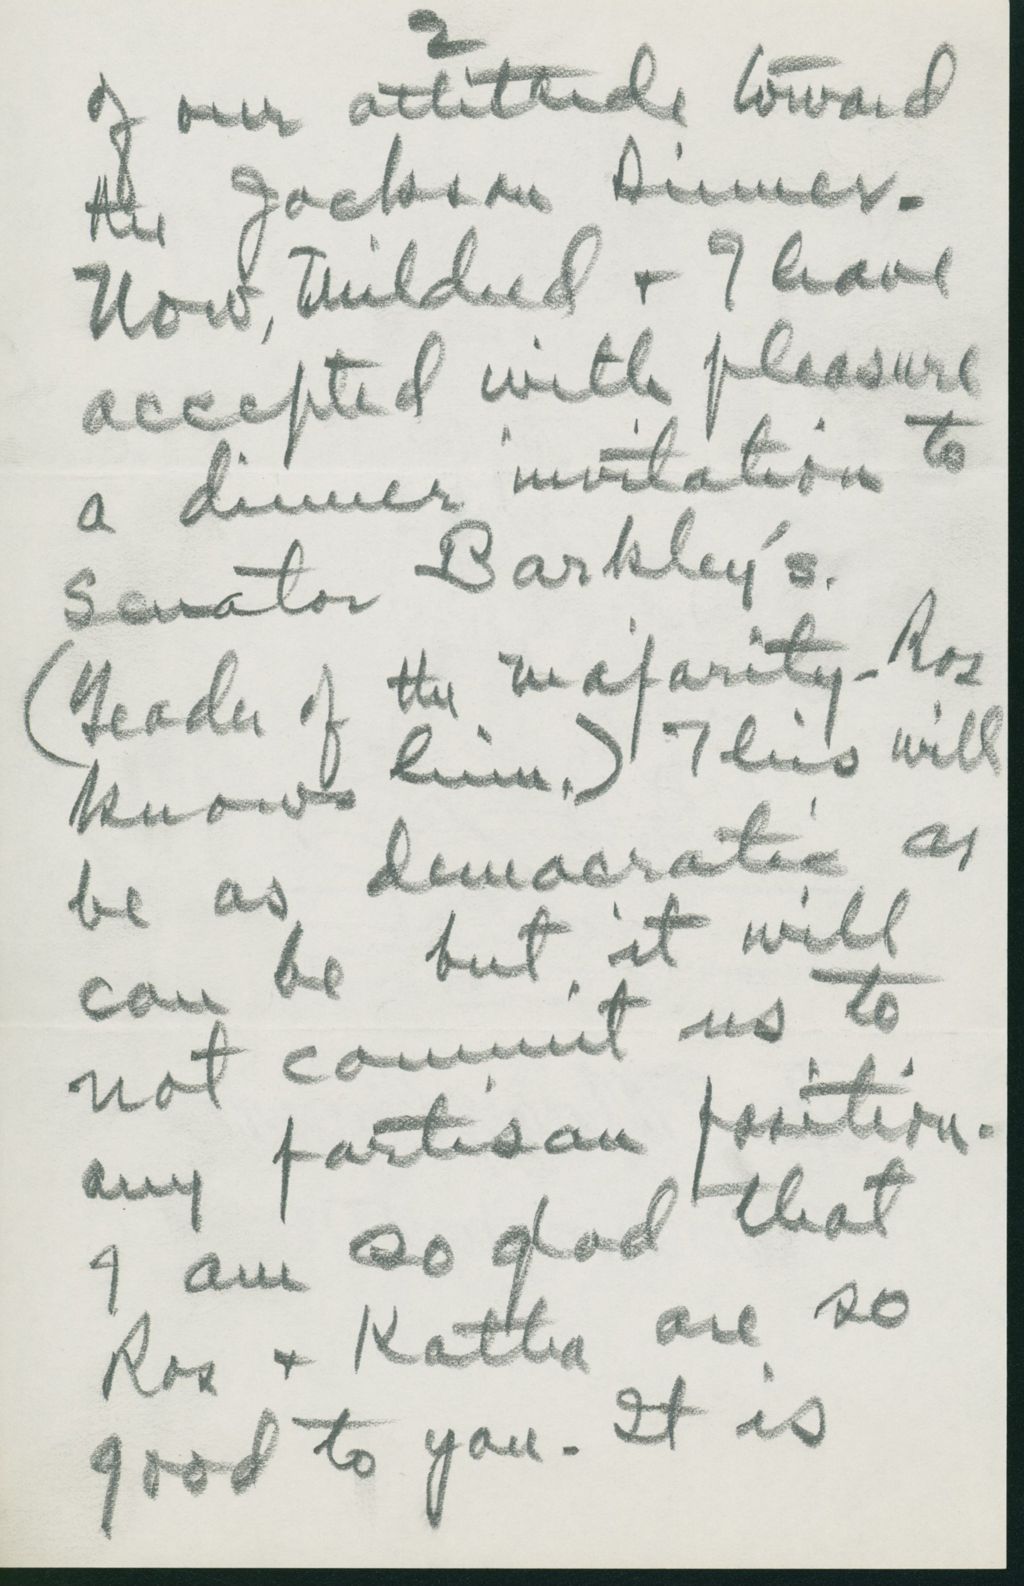 2
of our attitude toward
the Jackson Dinner.
Now, Mildred + I have
accepted with pleasure
a dinner invitation to
Senator Barkley's.
(Leader of the majority - Ros
knows him.) This will
be as democratic as
can be but it will
not commit us to
any partisan position.
I am so glad that
Ros + Katha are so
good to you. It is